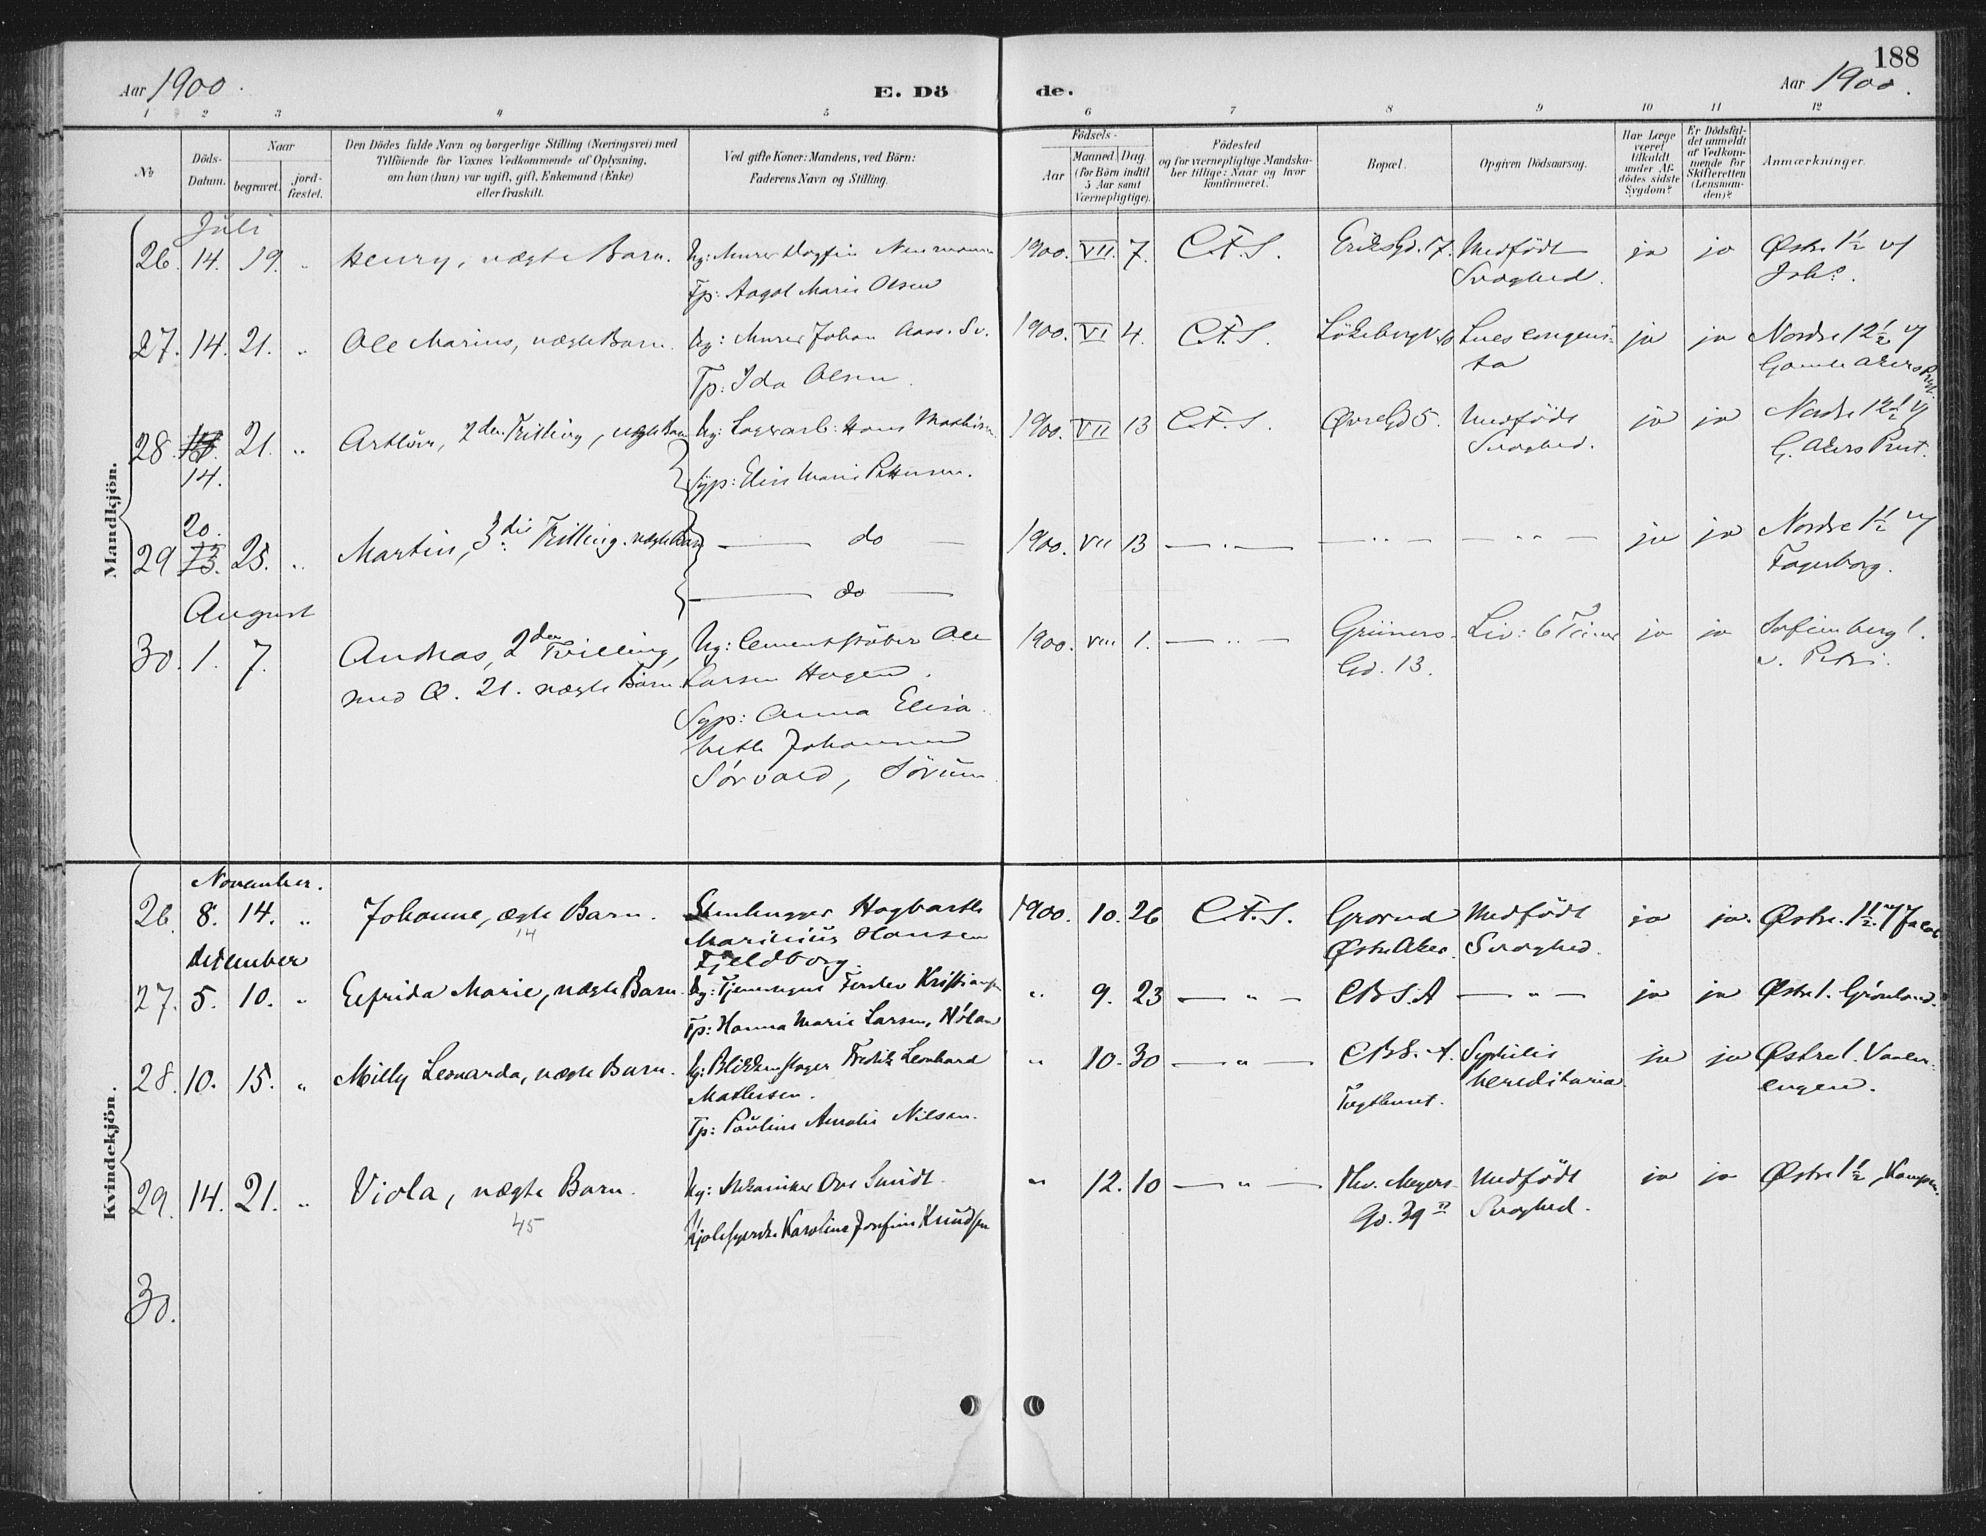 188
Aar 1900.
E. Dö
de.
Aar 1900.
1 2 3 4 5 6 7 8 9 10 11 12
No
Döds-
Datum.
Naar
begravet.
jord-
fæstet.
Den Dödes fulde Navn og borgerlige Stilling (Næringsvei) med
Tilföiende for Voxnes Vedkommende af Oplysning,
om han (hun) var ugift, gift, Enkemand (Enke)
eller fraskilt.
Ved gifte Koner: Mandens, ved Börn:
Faderens Navn og Stilling.
Födsels-
Aar
Maaned. Dag.
(for Börn indtil
5 Aar samt
Værnepligtige).
Födested
og for værnepligtige Mandska-
ber tillige: Naar og hvor
konfirmeret.
Bopæl.
Opgiven Dödsaarsag.
Har Læge
været
tilkaldt
under Af-
dödes sidste
Sygdom?
Er Dödsfal-
det anmeldt
af Vedkom-
mende for
Skifteretten
(Lensman-
den)?
Anmærkninger.
Mandkjön.
Juli
26. 14. 19. " Henry, uægte Barn. Ug: Murer Dagfin Neumann 1900. VII. 7. C.F.S. Eriksgd. 7. Medfödt ja ja Østre 1½ v/
Tp: Aagot Marie Olsen Svaghed. Joh?.
27. 14. 21. " Ole Marius, uægte Barn. Ug: Murer Johan Aass. Sv. 1900. VI 4. C.F.S. Lökebergv. Lues congeni- ja ja Nordre 12½ v/
Tp: Ida Olsen. ta Gamle Akers Præst.
28. 14. 21. " Arthur, 2den Trilling, uægte Barn Ug: Lagerarb: Hans Mathisen 1900. VII 13 C.F.S. Øvregd 5. Medfödt ja ja Nordre 12½ v/
Syp: Elise Marie Pettersen. Svaghed. G. Akers Præst.
20.
29 13. 25. " Martin, 3die Trilling. uægte Barn — do — 1900. VII 13 — " — — " — — " — ja ja Nordre 1½ v/
— do — Fagerborg.
August
30. 1. 7. Andreas, 2den Tvilling, Ug: Cementstöber Ole 1900. VIII 1. — " — Grüners- Liv: 6 Timer ja ja Sofienberg 1.
med Q. 21. uægte Barn. Larsen Hagen. Gd. 13. v. Petri.
Syp: Anna Elisa-
beth Johansen
Sörvald, Sörum.
Kvindekjön.
November.
26. 8. 14. " Johanne, ægte Barn. Stenhugger Hagbarth 1900. 10. 26 C.F.S. Grorud Medfödt ja ja. Østre. 1½ v/ Jacob
14 Marinius Hansen Østre Aker. Svaghed.
Fjeldborg.
December
27. 5. 10. " Elfrida Marie, uægte Barn. Ug: Tjenestegut Ferdev Kristiansen " 9. 23 — " — C B S. A — " — ja ja Østre 1. Grönland.
Tp: Hanna Marie Larsen, Höland
28. 10. 15. " Milly Leonarda, uægte Barn. Ug: Blikkenslager Fredrik Leonhard " 10. 30 — " — C B S. A. Syphilis ja ja Østre 1. Vaaler-
Mathisen. Tugthuset. hereditaria. engen.
Tp: Pauline Amalie Nilsen.
29. 14. 21. " Viola, uægte Barn. Ug: Mekaniker Ove Smidt. " 12. 10 — " — Thv. Meyers- Medfödt ja ja Østre 1½, Kampen.
45 Kjolesyerske Karoline Josefine Knudsen Gd. 39 Svaghed.
30.